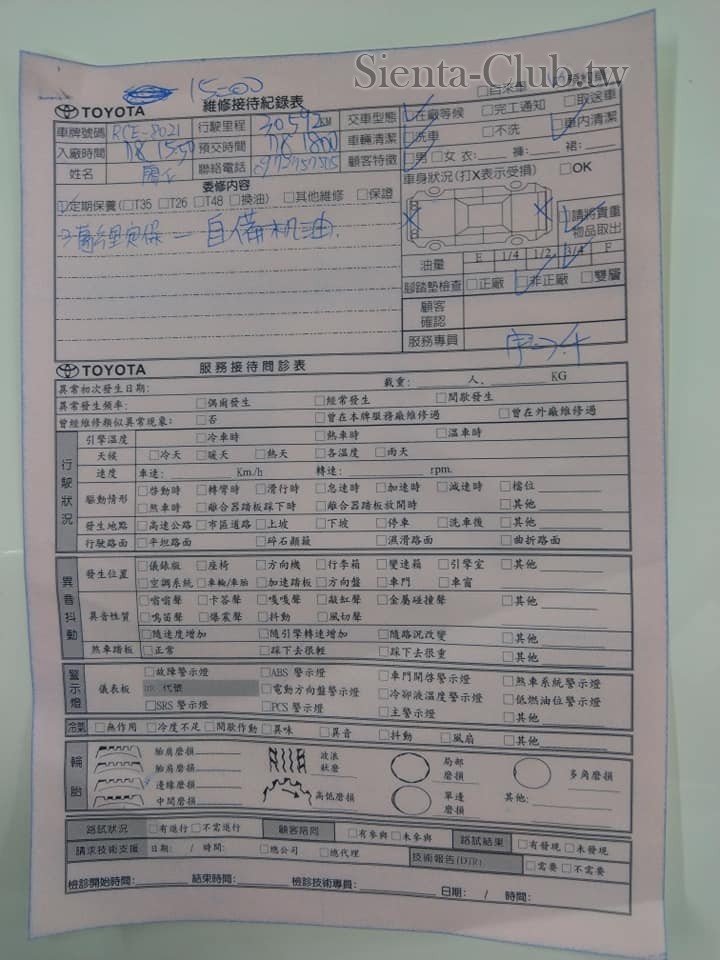 Sienta-Club.tw
15:00
TOYOTA 維修接待紀錄表
□自來單
車牌號碼 RCE-8021 行駛里程 30592KM 交車型態 □在廠等候 □完工通知 □取送車
入廠時間 預交時間 車輛清潔 □洗車 □不洗 □車內清潔
姓名 聯絡電話 顧客特徵 □男 □女 衣: 褲: 裙:
委修內容
車身狀況(打X表示受損) □OK
□定期保養(□T35 □T26 □T48 □換油) □其他維修 □保證
3萬公里定保 — 自備机油.
□請將貴重
物品取出
油量 E 1/4 1/2 3/4 F
腳踏墊檢查 □正廠 □非正廠 □雙層
顧客
確認
服務專員
TOYOTA 服務接待問診表
異常初次發生日期: 載重: 人、 KG
異常發生頻率: □偶爾發生 □經常發生 □間歇發生
曾經維修類似異常現象: □否 □曾在本牌服務廠維修過 □曾在外廠維修過
行駛狀況
引擎溫度 □冷車時 □熱車時 □溫車時
天候 □冷天 □暖天 □熱天 □各溫度 □雨天
速度 車速: Km/h 轉速: rpm.
驅動情形 □啓動時 □轉彎時 □滑行時 □怠速時 □加速時 □減速時 □檔位
□煞車時 □離合器踏板踩下時 □離合器踏板放開時 □其他
發生地點 □高速公路 □市區道路 □上坡 □下坡 □停車 □洗車後 □其他
行駛路面 □平坦路面 □碎石顛簸 □濕滑路面 □曲折路面
異音抖動
發生位置 □儀錶版 □座椅 □方向機 □行李箱 □變速箱 □引擎室 □其他
□空調系統 □車輪/車胎 □加速踏板 □方向盤 □車門 □車窗
異音性質 □嗡嗡聲 □卡答聲 □嘎嘎聲 □齦缸聲 □金屬碰撞聲 □其他
□鳴笛聲 □爆震聲 □抖動 □風切聲
□隨速度增加 □隨引擎轉速增加 □隨路況改變 □其他
煞車踏板 □正常 □踩下去很輕 □踩下去很重 □其他
警示燈
儀表板 □故障警示燈 □ABS 警示燈 □車門開啓警示燈 □煞車系統警示燈
代號 □電動方向盤警示燈 □冷卻液溫度警示燈 □低燃油位警示燈
□SRS 警示燈 □PCS 警示燈 □主警示燈 □其他
冷氣 □無作用 □冷度不足 □間歇作動 □異味 □異音 □抖動 □風扇 □其他
輪胎
胎肩磨損 波浪狀磨 局部磨損 多角磨損
胎肩磨損
邊緣磨損 高低磨損 單邊磨損 其他:
中間磨損
路試狀況 □有進行 □不需進行 顧客陪同 □有參與 □未參與 路試結果 □有發現 □未發現
請求技術支援 日期: / 時間: □總公司 □總代理 技術報告(DTR) □需要 □不需要
檢診開始時間: 結束時間: 檢診技術專員: 日期: / 時間: